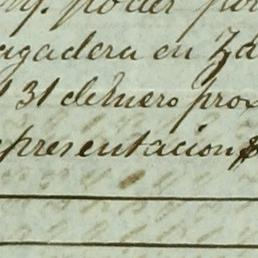 poder
agadera en Za
31 de Enero prox
epresentacion